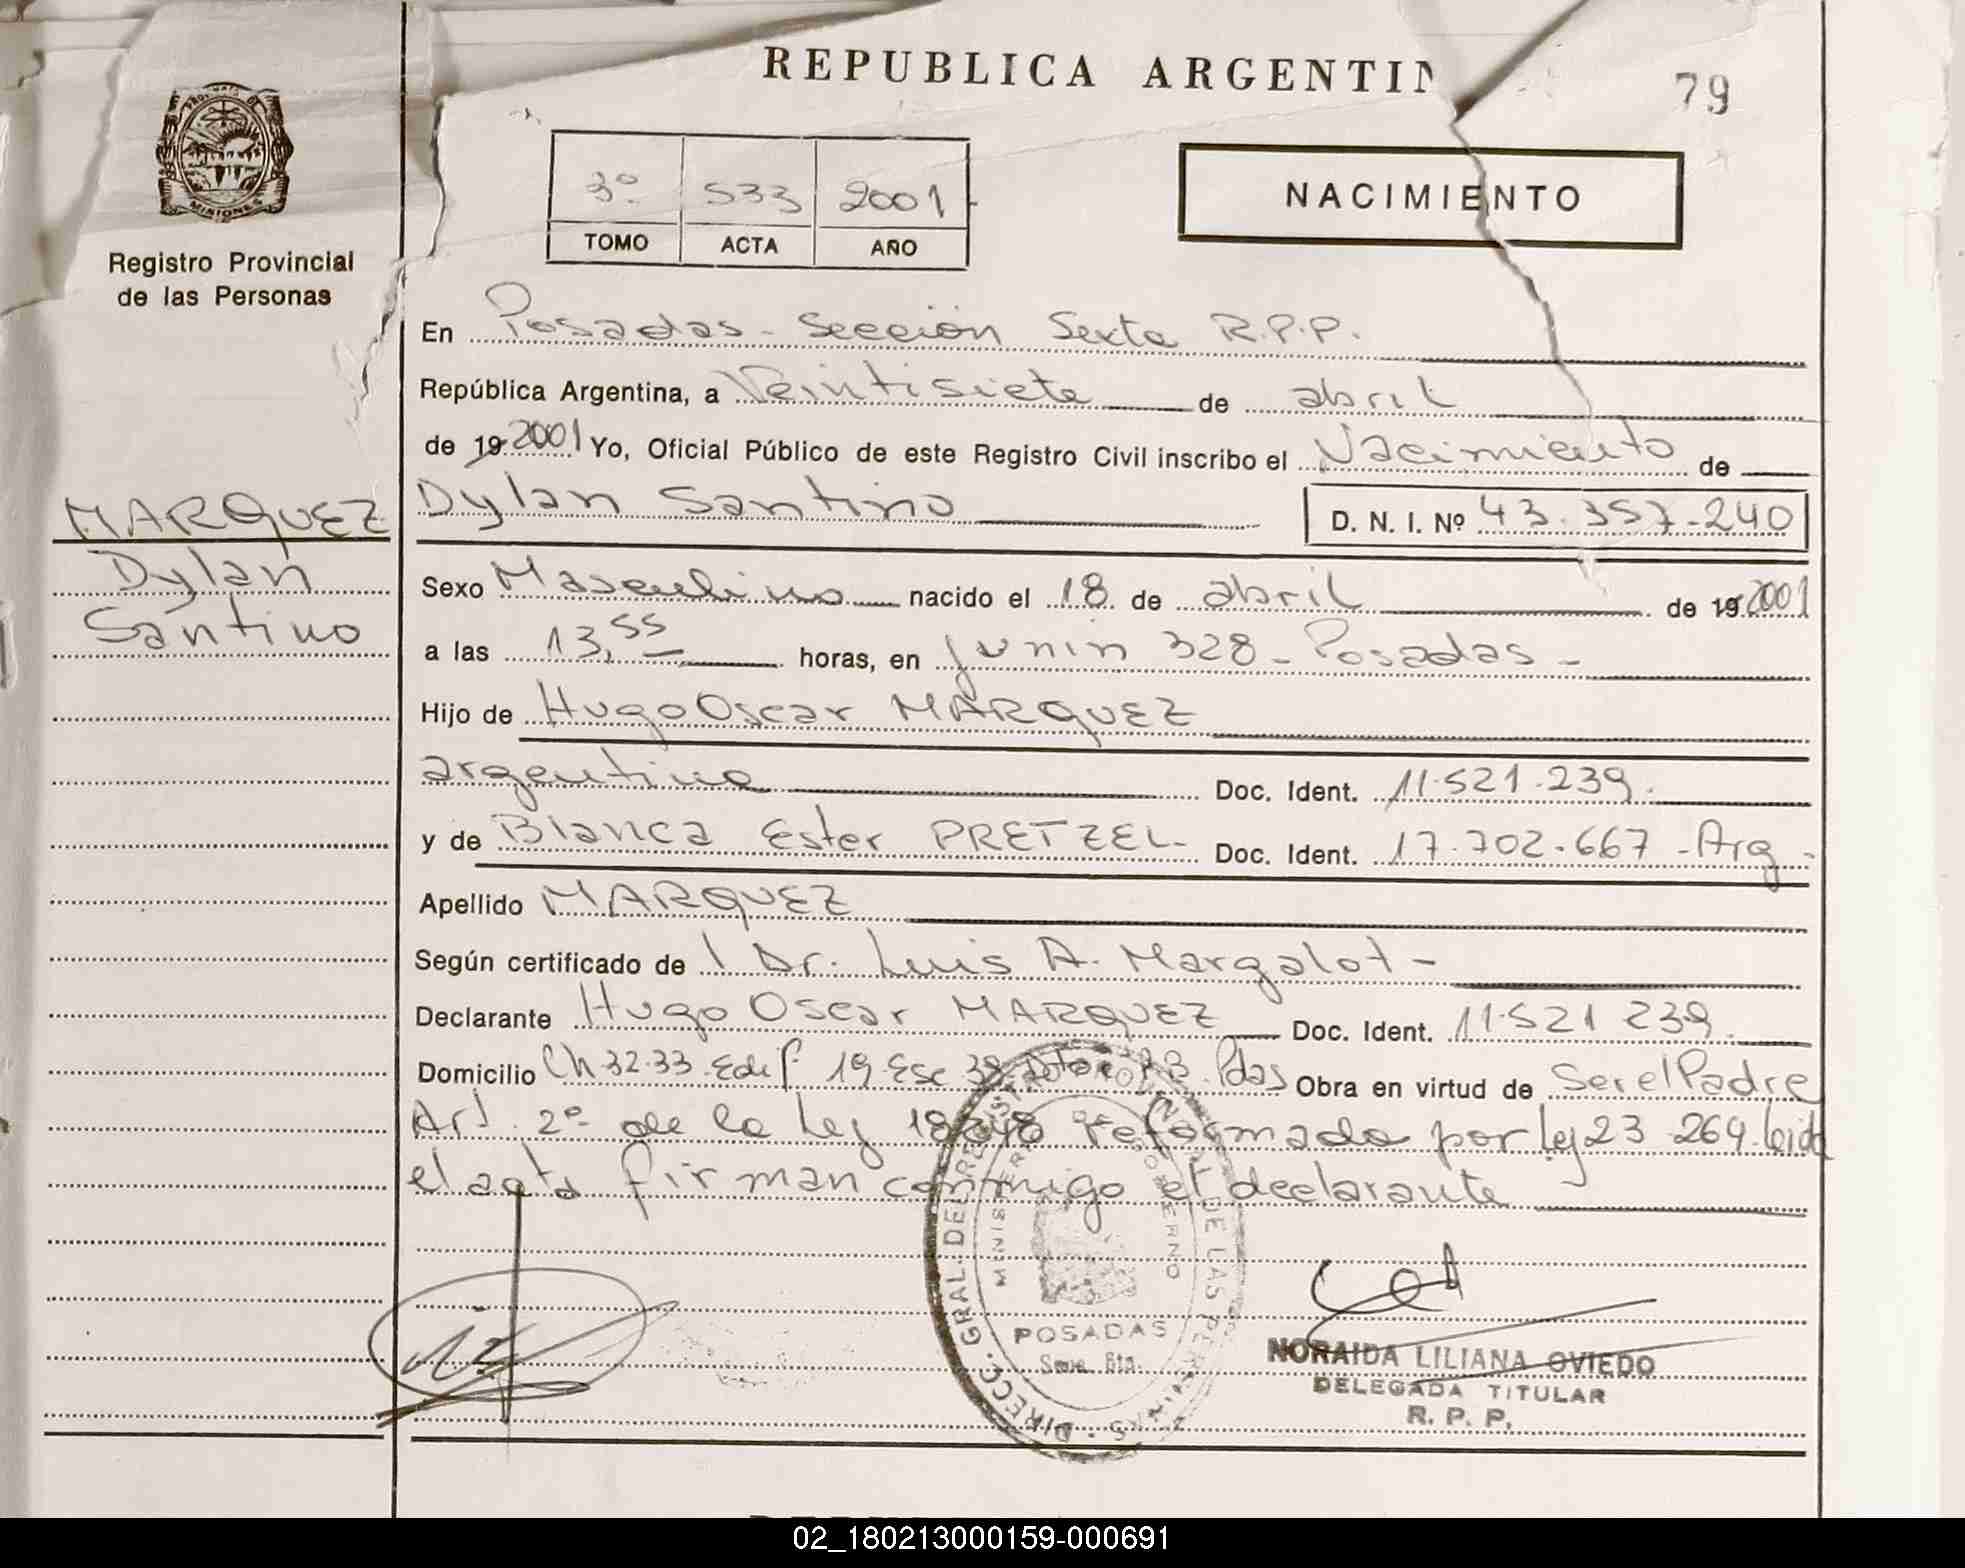 REPUBLICA ARGENTIN
79
PROV. DE
MISIONES
Registro Provincial
de las Personas
3º 533 2001
TOMO ACTA AÑO
NACIMIENTO
En Posadas - Sección Sexta R.P.P.
República Argentina, a Veintisiete de abril
de 19 2001 Yo, Oficial Público de este Registro Civil inscribo el Nacimiento de
MARQUEZ
Dylan
Santino
Dylan Santino D. N. I. Nº 43.357-240
Sexo Masculino nacido el 18 de abril de 19 2001
a las 13,55 horas, en Junin 328 - Posadas -
Hijo de Hugo Oscar MARQUEZ
argentino Doc. Ident. 11.521.239.
y de Blanca Ester PRETZEL - Doc. Ident. 17.702.667 - Arg -
Apellido MARQUEZ
Según certificado de Dr. Luis A. Margalot -
Declarante Hugo Oscar MARQUEZ Doc. Ident. 11.521 239.
Domicilio Ch 32.33. Edif 19. Esc Pdas Obra en virtud de Ser el Padre
Art. 2º de la Ley 18248 reformada por Ley 23.264. leida
el acta firman conmigo el declarante
DIRECC. GRAL. DEL REGISTRO PROVINCIAL DE LAS PERSONAS
MINISTERIO DE GOBIERNO
POSADAS
Secc. 6ta.
NORAIDA LILIANA OVIEDO
DELEGADA TITULAR
R. P. P.
02_180213000159-000691